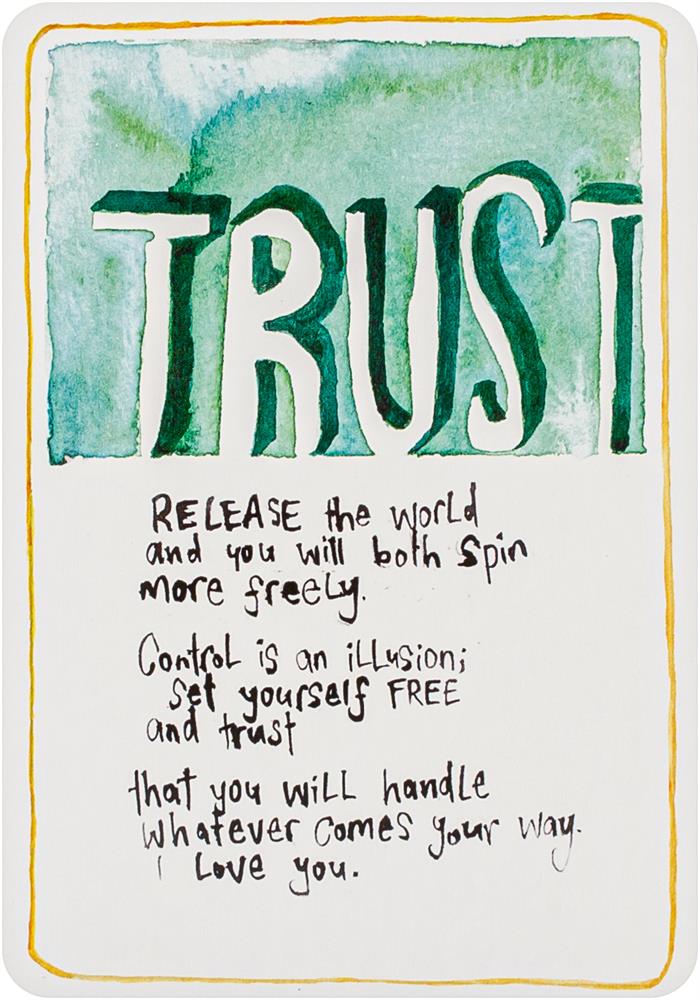 TRUST
RELEASE the world
and you will both spin
more freely.
Control is an illusion;
set yourself FREE
and trust
that you will handle
whatever comes your way.
I Love you.